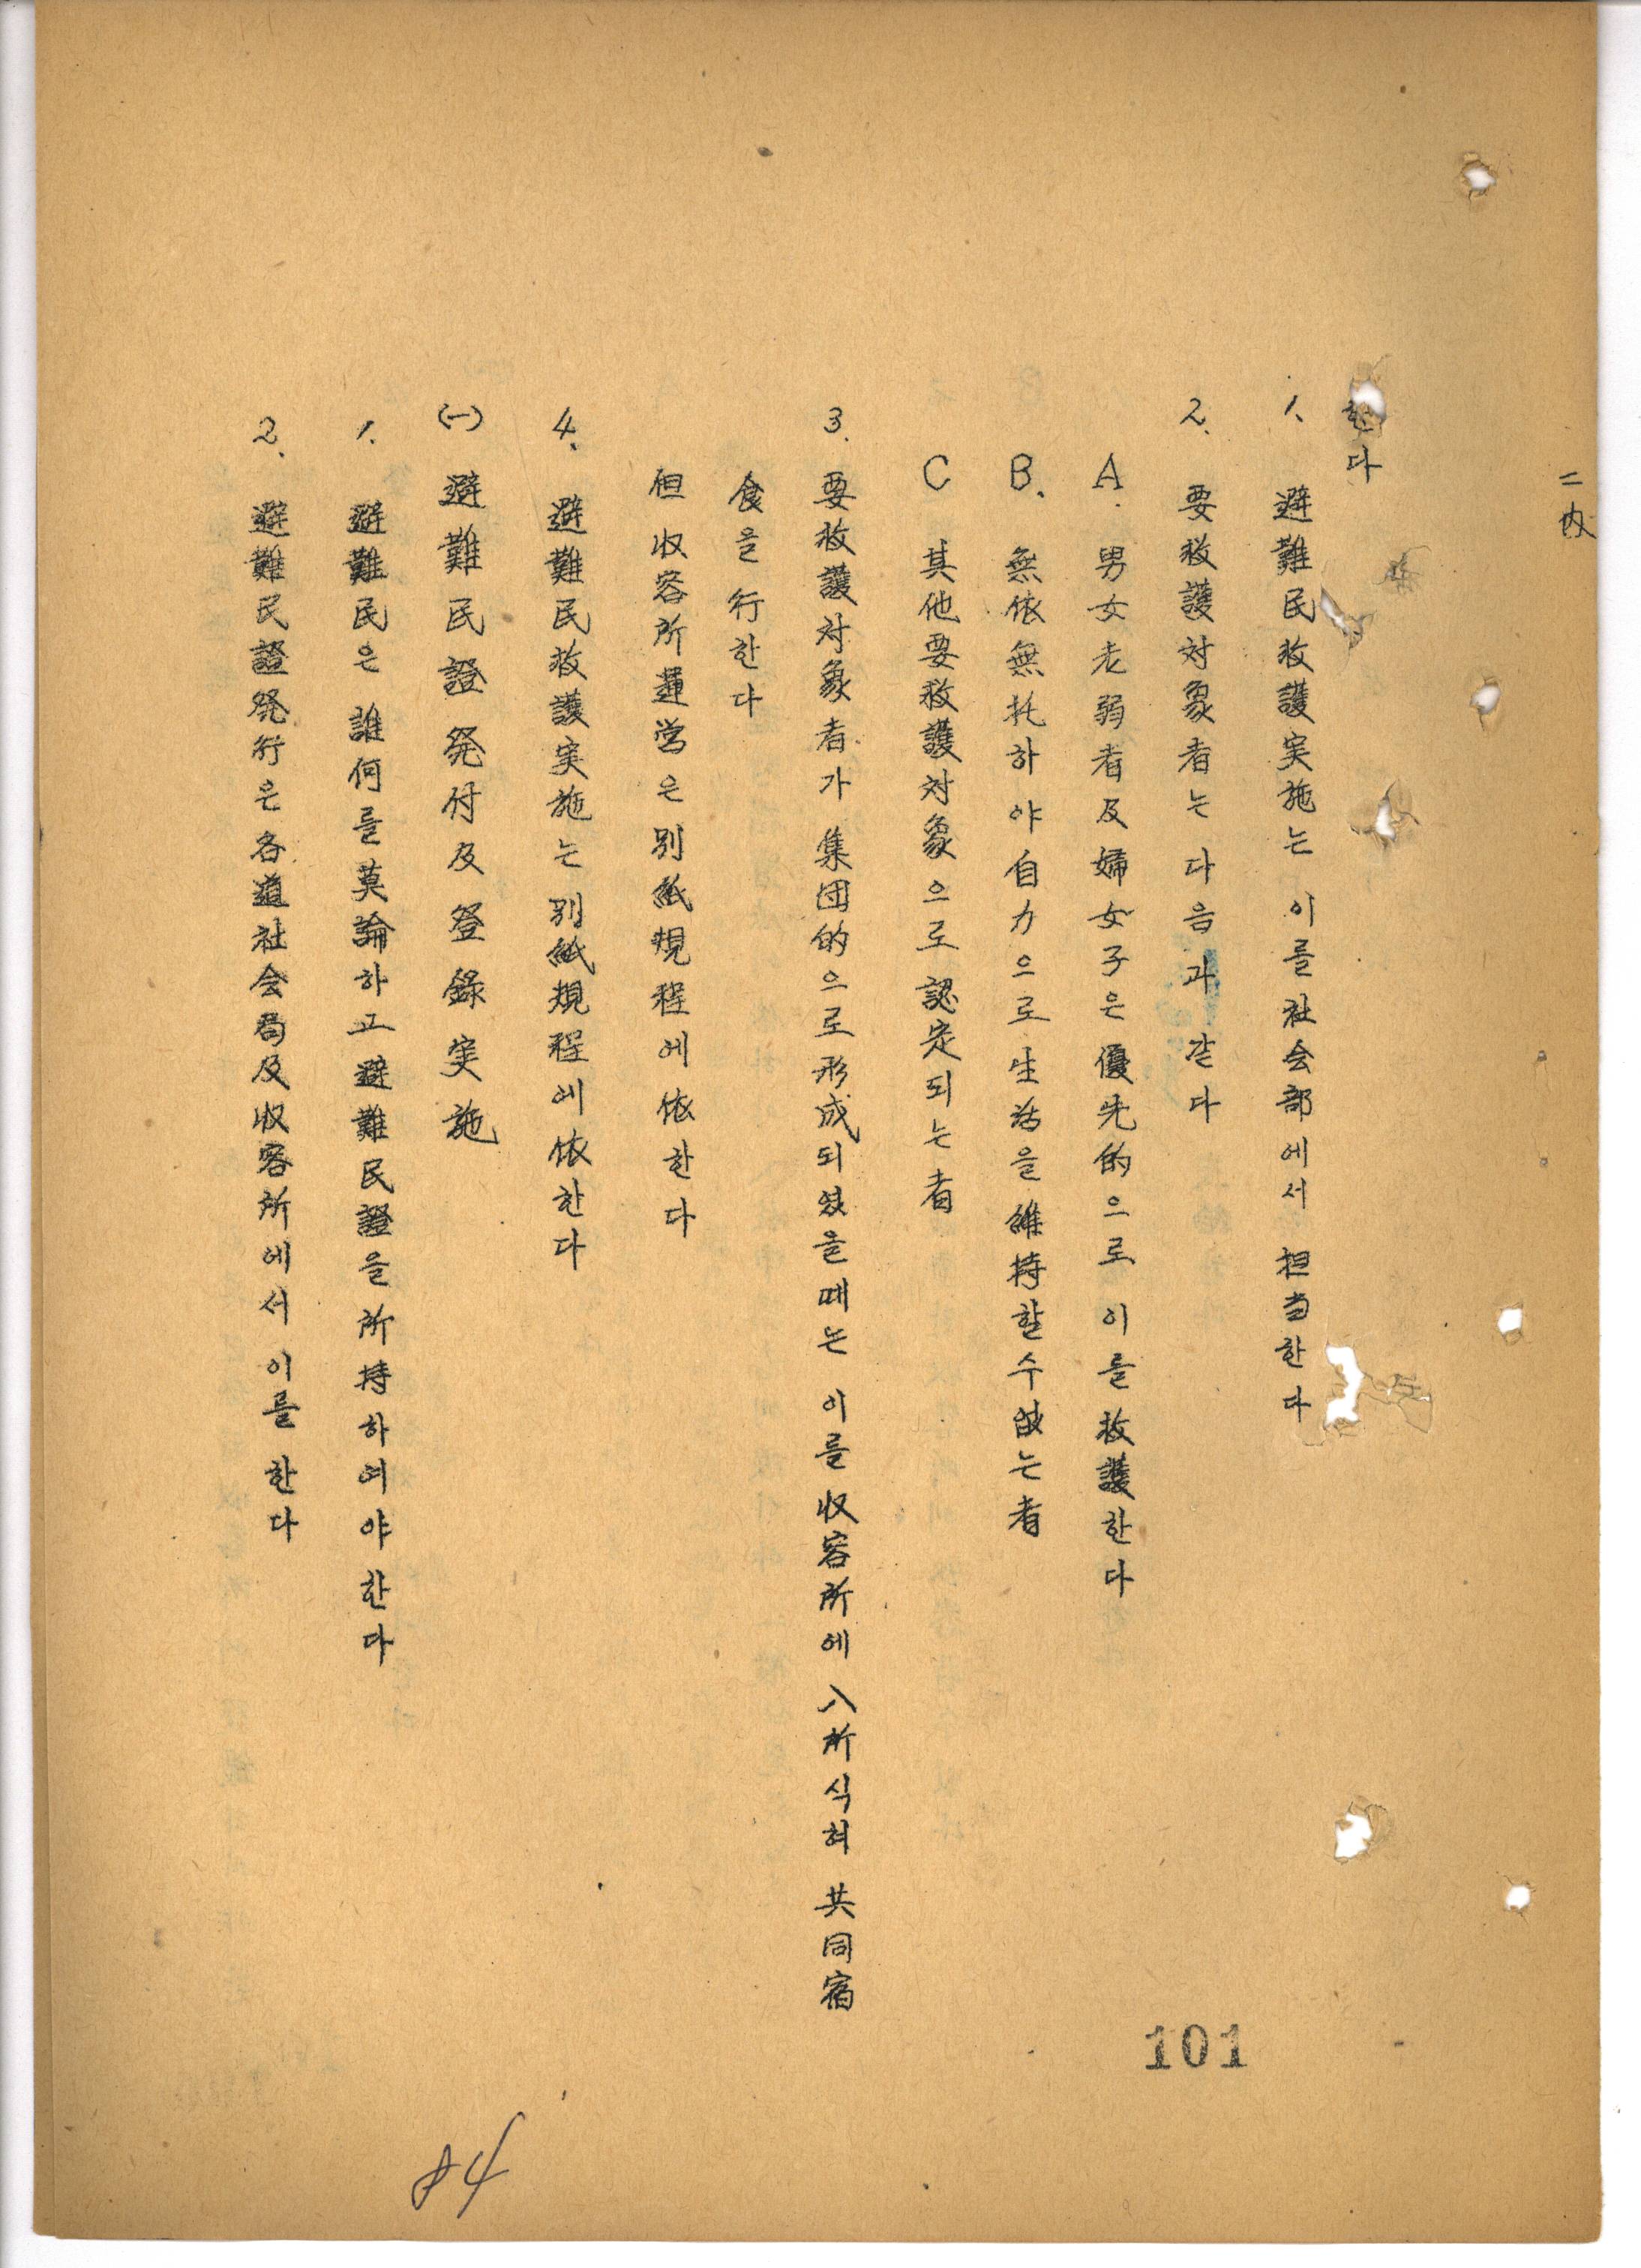 한다
1. 避難民救護实施는 이를 社会部에서 担当한다
2. 要救護対象者는 다음과 같다
A. 男女老弱者及婦女子은 優先的으로 이를 救護한다
B. 無依無托하야 自力으로 生活을 維持할수 없는 者
C 其他要救護対象으로 認定되는 者
3. 要救護対象者가 集団的으로 形成되였을때는 이를 収容所에 入所식혀 共同宿
食을 行한다
但 収容所運営은 別紙規程에 依한다
4. 避難民救護实施는 別紙規程에 依한다
(一) 避難民證発付及登錄実施
1. 避難民은 誰何를 莫論하고 避難民證을 所持하여야 한다
2. 避難民證発行은 各道社会局及収容所에서 이를 한다
101
84